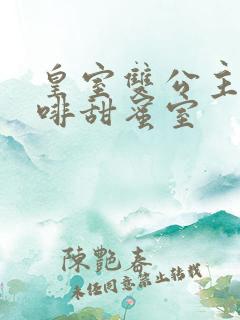 皇室雙公主
啡甜蜜室
陳艷春
未经同意禁止转载